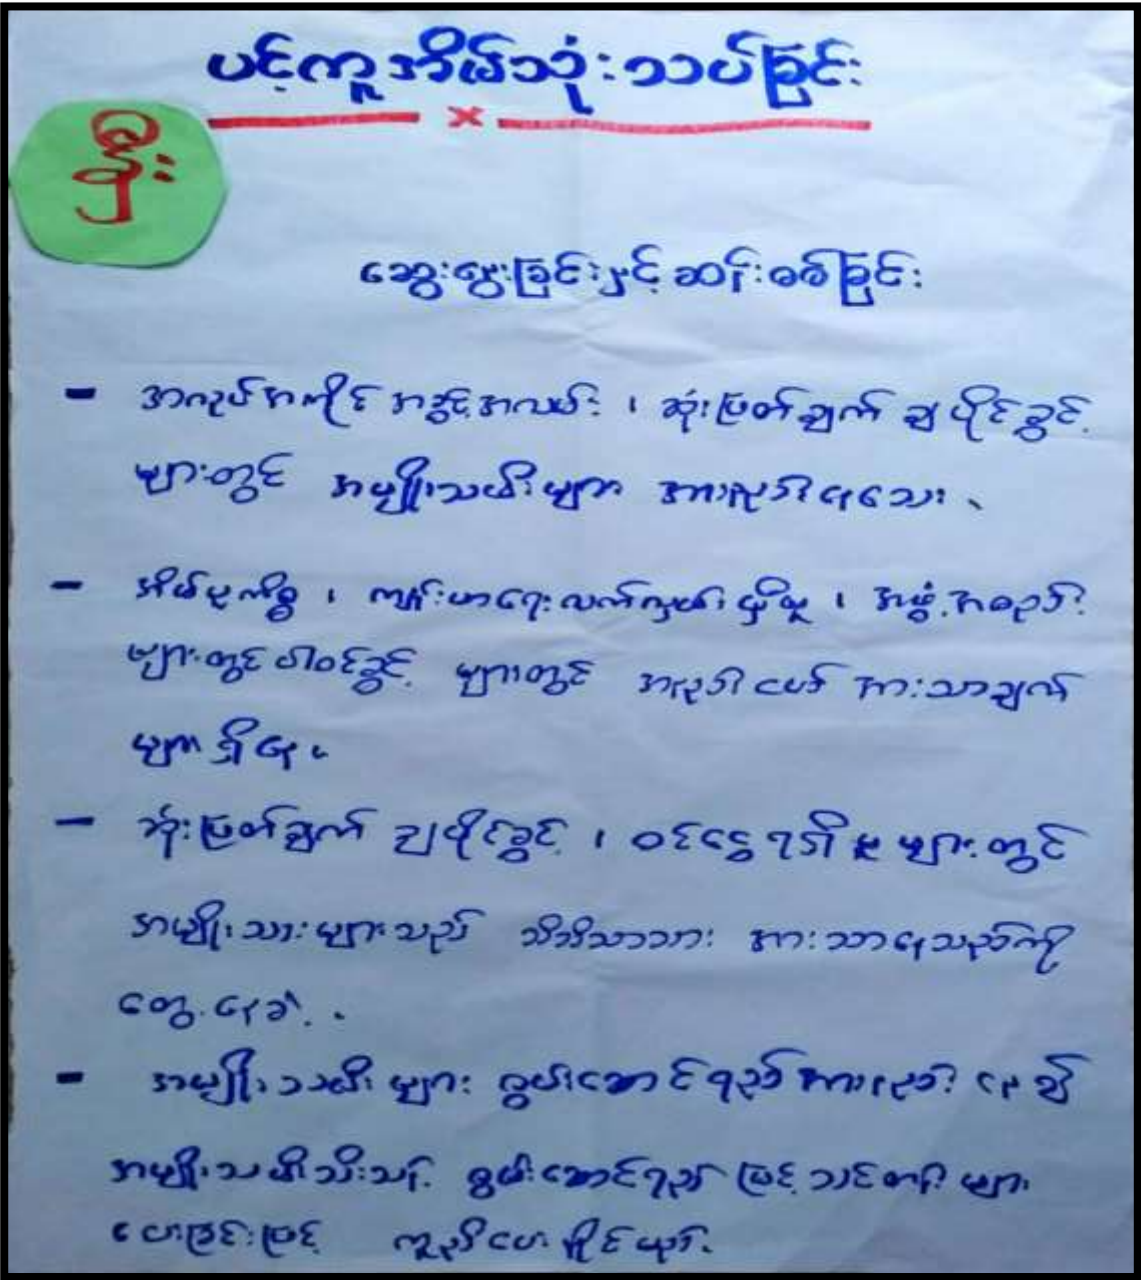 ပင့်ကူအိမ်သုံးသပ်ခြင်း
မိုး
ဆွေးနွေးခြင်းနှင့်ဆန်းစစ်ခြင်း
- အလုပ်အကိုင် အခွင့်အလမ်း ၊ ဆုံးဖြတ်ချက် ချပိုင်ခွင့်
များတွင် အမျိုးသမီးများ အားနည်းနေသေး ၊
- အိမ်မှုကိစ္စ ၊ ကျန်းမာရေးလက်လှမ်းမှီမှု ၊ အဖွဲ့အစည်း
များတွင်ပါဝင်ခွင့် များတွင် အနည်းငယ် အားသာချက်
များရှိနေ ၊
- ဆုံးဖြတ်ချက် ချပိုင်ခွင့် ၊ ဝင်ငွေရရှိမှုများတွင်
အမျိုးသားများသည် သိသိသာသာ အားသာနေသည်ကို
တွေ့နေခဲ့ ၊
- အမျိုးသမီးများ စွမ်းဆောင်ရည်အားနည်းနေ၍
အမျိုးသမီးသီးသန့် စွမ်းဆောင်ရည်မြင့်သင်တန်းများ
ပေးခြင်းဖြင့် ကူညီပေးနိုင်မည်.